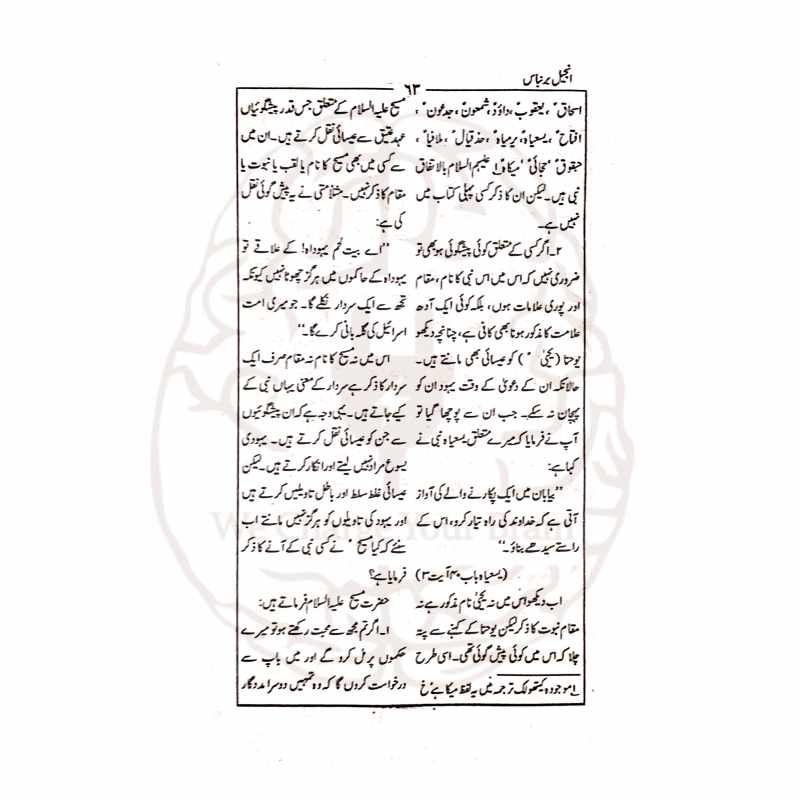 انجیل برنباس
۶۳
اسحاقؑ، یعقوبؑ، داؤدؑ، شمعونؑ، جدعونؑ،
افتاحؑ، یسعیاہؑ، یرمیاہؑ، حذقیالؑ، ملافیاؑ،
حبقوقؑ، حجائیؑ، میکاہؑ علیہم السلام بالاتفاق
نبی ہیں۔ لیکن ان کا ذکر کسی پہلی کتاب میں
نہیں ہے۔
۲۔ اگر کسی کے متعلق کوئی پیشگوئی ہو بھی تو
ضروری نہیں کہ اس میں اس نبی کا نام، مقام
اور پوری علامات ہوں، بلکہ کوئی ایک آدھ
علامت کا مذکور ہونا بھی کافی ہے، چنانچہ دیکھو
یوحنا (یحییٰؑ) کو عیسائی بھی مانتے ہیں۔
حالانکہ ان کے دعویٰ کے وقت یہود ان کو
پہچان نہ سکے۔ جب ان سے پوچھا گیا تو
آپ نے فرمایا کہ میرے متعلق یسعیاہ نبی نے
کہا ہے:
’’بیابان میں ایک پکارنے والے کی آواز
آتی ہے کہ خداوند کی راہ تیار کرو، اس کے
راستے سیدھے بناؤ۔‘‘
(یسعیاہ باب ۴۰ آیت ۳)
اب دیکھو اس میں نہ یحییٰ نام مذکور ہے نہ
مقام نبوت کا ذکر لیکن یوحنا کے کہنے سے پتہ
چلا کہ اس میں کوئی پیش گوئی تھی۔ اسی طرح
۱؎ موجودہ کیتھولک ترجمہ میں یہ لفظ میکا ہے خ
مسیح علیہ السلام کے متعلق جس قدر پیشگوئیاں
عہد عتیق سے عیسائی نقل کرتے ہیں۔ ان میں
سے کسی میں بھی مسیح کا نام یا لقب یا نبوت یا
مقام کا ذکر نہیں۔ مثلاً متی نے یہ پیش گوئی نقل
کی ہے:
’’اے بیت لحم یہوداہ! کے علاقے تو
یہوداہ کے حاکموں میں ہرگز چھوٹا نہیں کیونکہ
تجھ سے ایک سردار نکلے گا۔ جو میری امت
اسرائیل کی گلہ بانی کرے گا۔‘‘
اس میں نہ مسیح کا نام نہ مقام صرف ایک
سردار کا ذکر ہے سردار کے معنی یہاں نبی کے
کیے جاتے ہیں۔ یہی وجہ ہے کہ ان پیشگوئیوں
سے جن کو عیسائی نقل کرتے ہیں۔ یہودی
یسوع مراد نہیں لیتے اور انکار کرتے ہیں۔ لیکن
عیسائی غلط سلط اور باطل تاویلیں کرتے ہیں
اور یہود کی تاویلوں کو ہرگز نہیں مانتے اب
سنئے کہ کیا مسیحؑ نے کسی نبی کے آنے کا ذکر
فرمایا ہے؟
حضرت مسیح علیہ السلام فرماتے ہیں:
۱۔ اگر تم مجھ سے محبت رکھتے ہو تو میرے
حکموں پر عمل کرو گے اور میں باپ سے
درخواست کروں گا کہ وہ تمہیں دوسرا مددگار